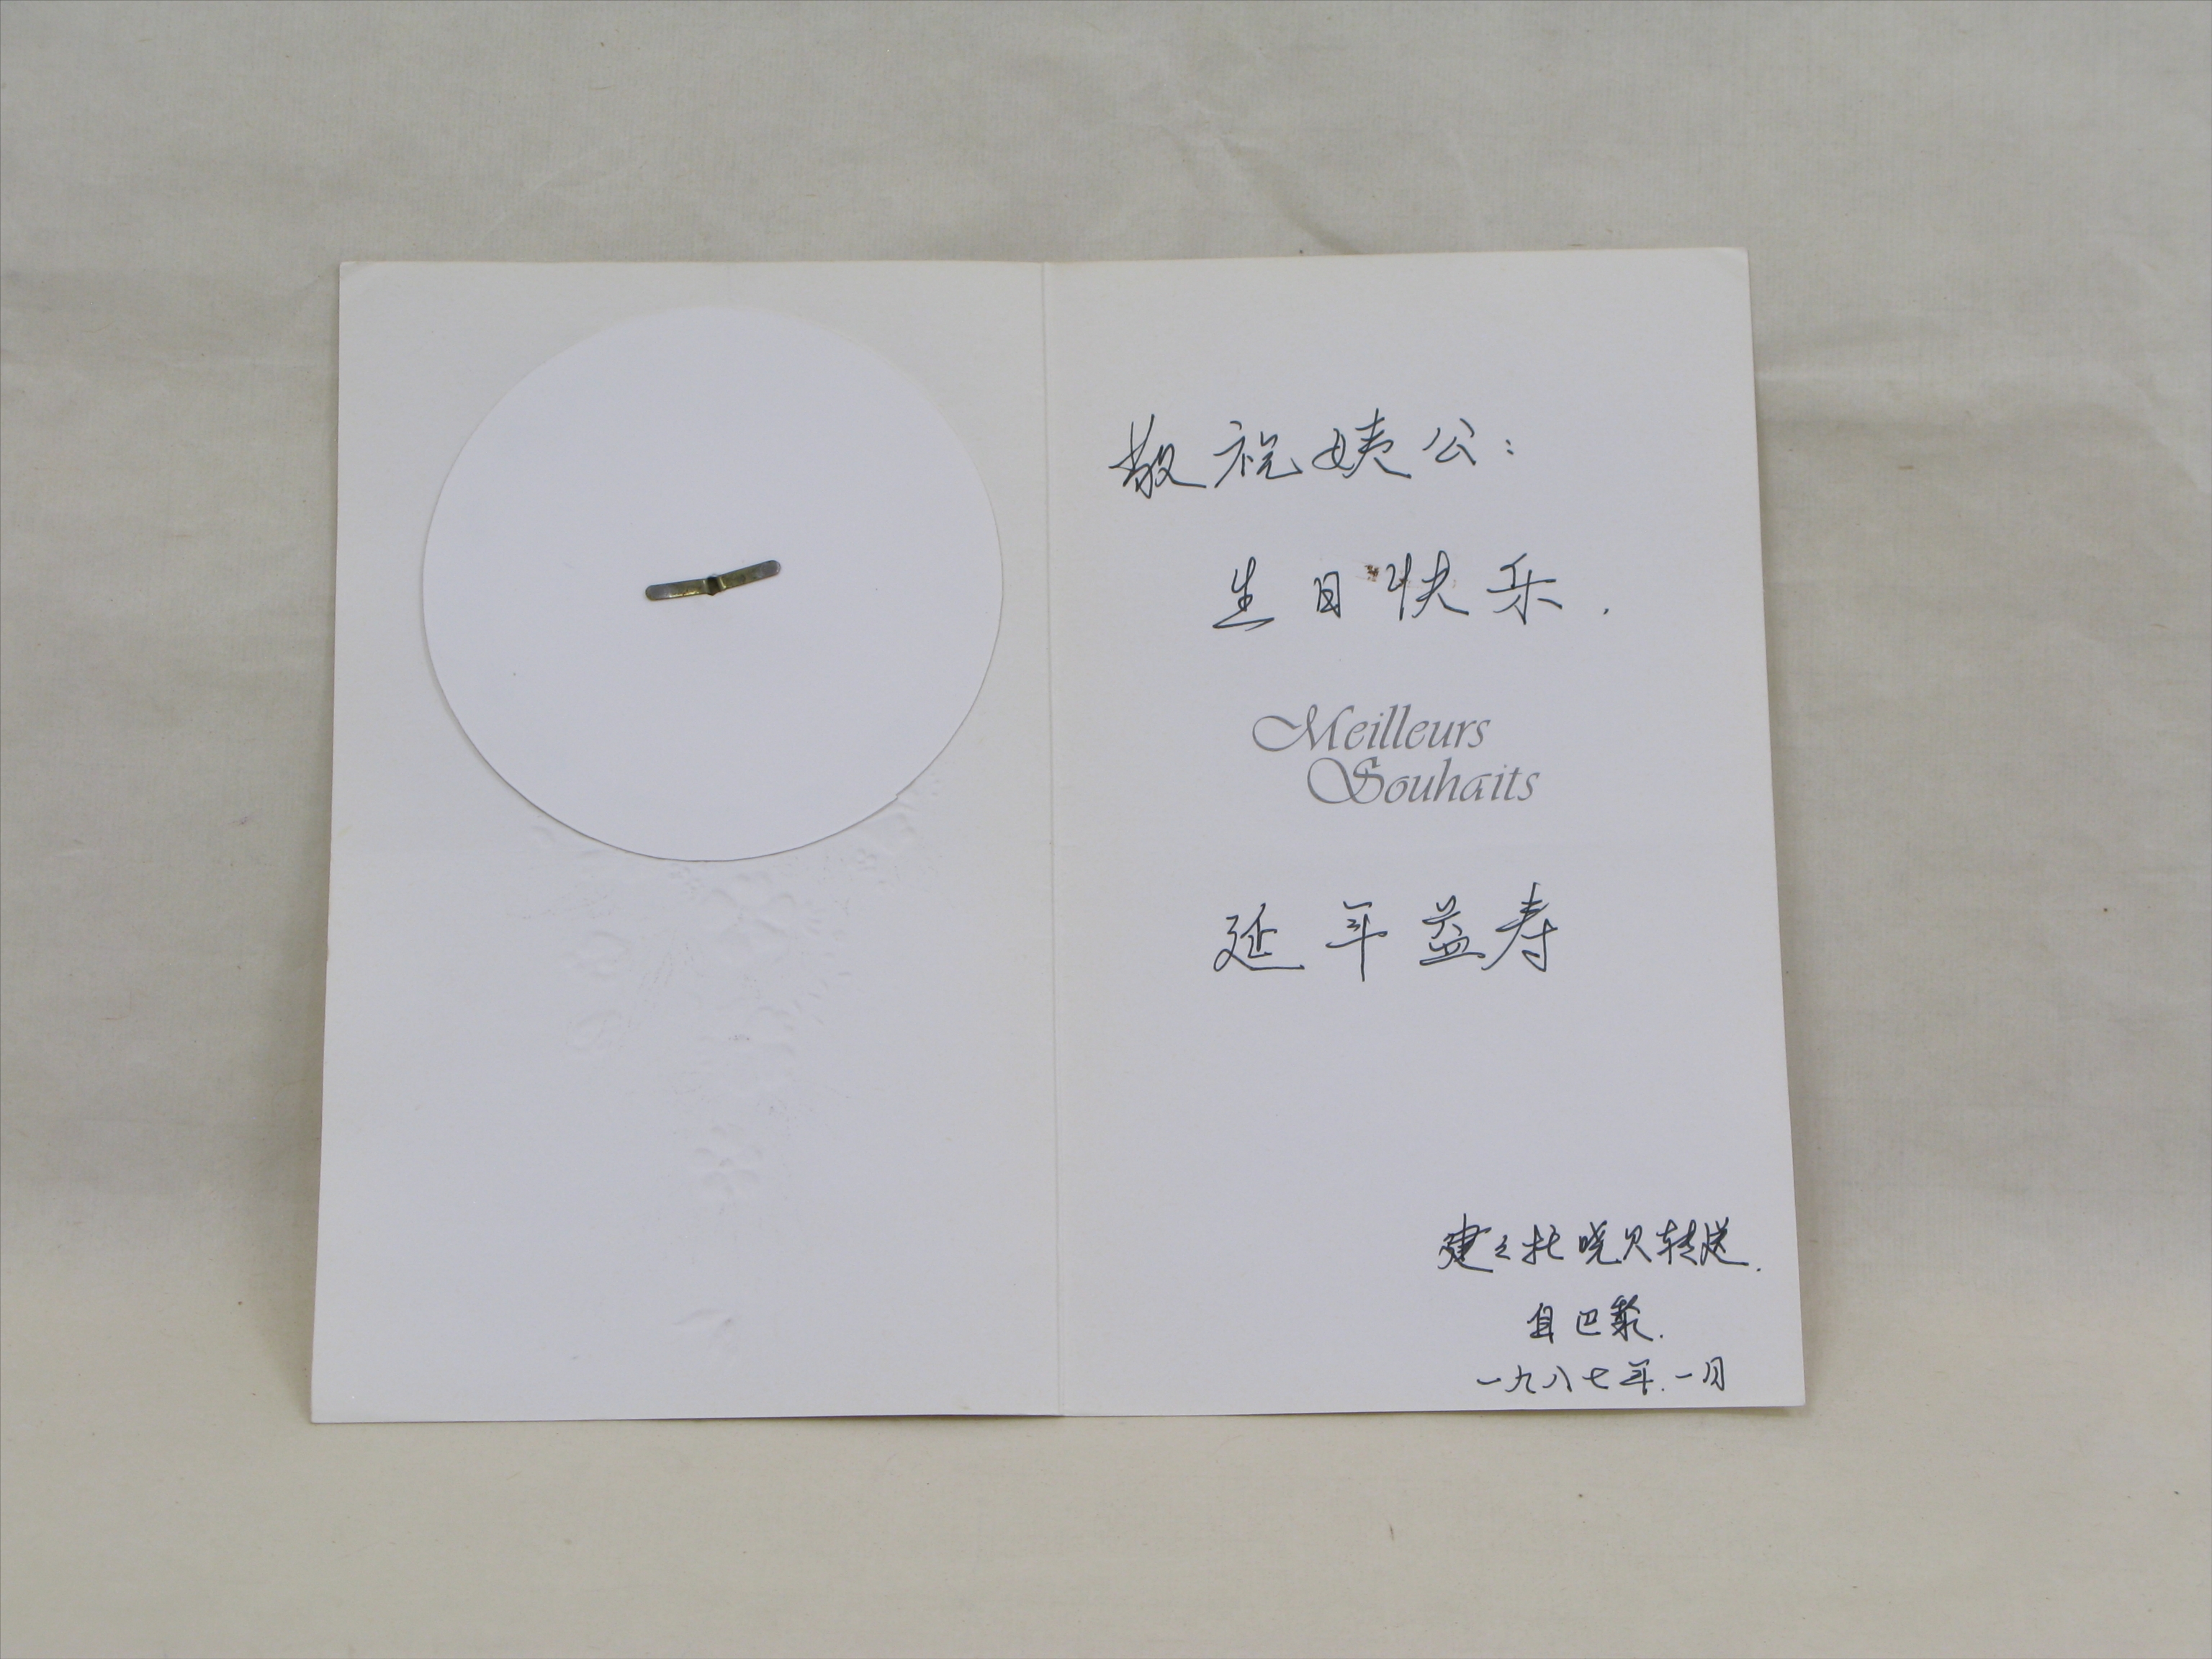 敬祝姨公：
生日快乐.
Meilleurs
Souhaits
延年益寿
建之托晓贝转送.
自巴黎.
一九八七年.一月